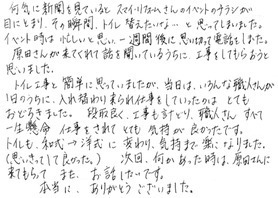 何気に新聞を見ていると スマイリフォームさんのイベントのチラシが
目にとまり、その瞬間、トイレ替えたいな…と思ってしまいました。
イベント時は忙しいと思い、一週間後に思い切って電話をした。
原田さんが来てくれて話を聞いているうちに、工事をしてもらおうと
思いました。
トイレ工事と簡単に思っていましたが、当日は、いろんな職人さんが
1日のうちに、入れ替わり来られ仕事をしていったのは とても
おどろきました。 段取良く、工事も計どり、職人さん すべて
一生懸命 仕事をされて とても 気持が 良かったです。
トイレも、和式→洋式 に 変わり、気持まで 楽に なりました。
(思いきってして良かった。) 次回、何か あった時は、原田さんに
来てもらって また、お話 したいです。
本当に、ありがとう ございました。